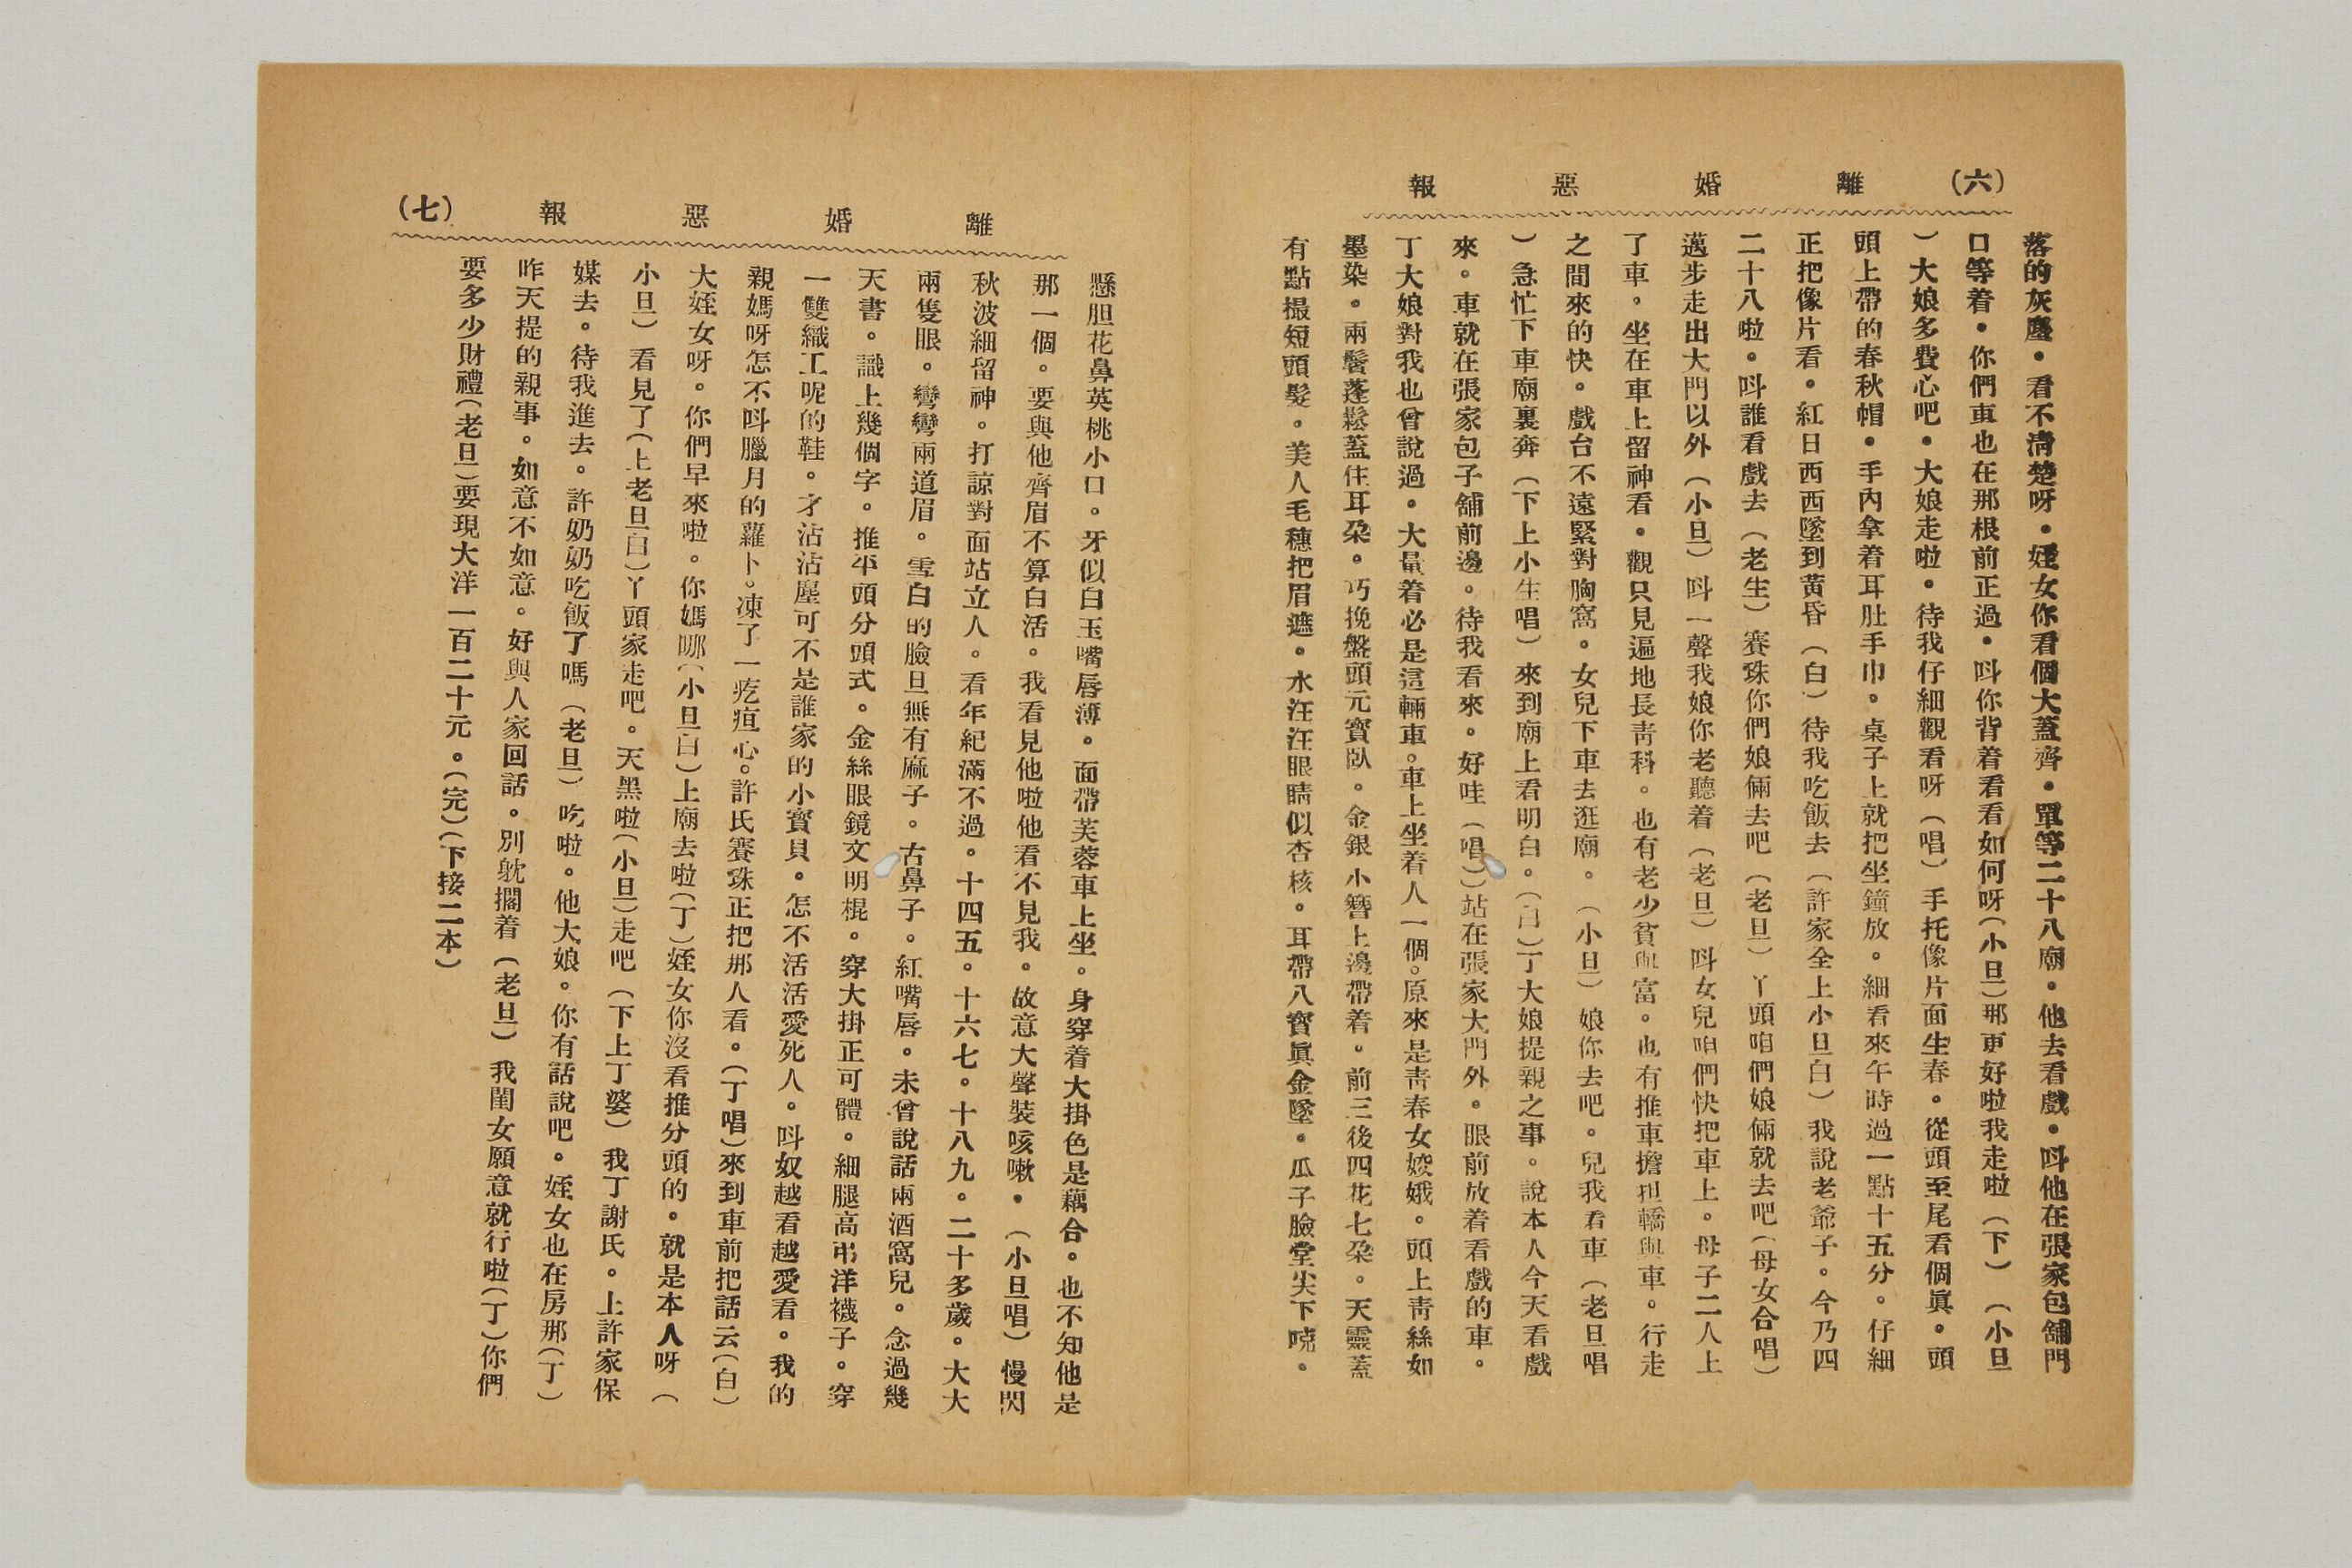 （六）　離　婚　惡　報
落的灰塵・看不淸楚呀・姪女你看個大蓋齊・單等二十八廟・他去看戲・呌他在張家包舖門
口等着・你們車也在那根前正過・呌你背着看看如何呀（小旦）那更好啦我走啦（下）（小旦
）大娘多費心吧・大娘走啦。待我仔細觀看呀（唱）手托像片面生春。從頭至尾看個眞。頭
頭上帶的春秋帽・手內拿着耳肚手巾。桌子上就把坐鐘放。細看來午時過一點十五分。仔細
正把像片看。紅日西西墜到黃昏（白）待我吃飯去（許家全上小旦白）我說老爺子。今乃四
二十八啦。呌誰看戲去（老生）賽珠你們娘倆去吧（老旦）丫頭咱們娘倆就去吧（母女合唱）
邁步走出大門以外（小旦）呌一聲我娘你老聽着（老旦）呌女兒咱們快把車上。母子二人上
了車。坐在車上留神看。觀只見遍地長靑科。也有老少貧與富。也有推車擔担轎與車。行走
之間來的快。戲台不遠緊對胸窩。女兒下車去逛廟。（小旦）娘你去吧。兒我看車（老旦唱
）急忙下車廟裏奔（下上小生唱）來到廟上看明白。（白）丁大娘提親之事。說本人今天看戲
來。車就在張家包子舖前邊。待我看來。好哇（唱））站在張家大門外。眼前放着看戲的車。
丁大娘對我也曾說過。大量着必是這輛車。車上坐着人一個。原來是靑春女姣娥。頭上靑絲如
墨染。兩鬢蓬鬆蓋住耳朶。巧挽盤頭元寳臥。金銀小簪上邊帶着。前三後四花七朶。天靈蓋
有點撮短頭髮。美人毛穗把眉遮。水汪汪眼睛似杏核。耳帶八寳眞金墜。瓜子臉堂尖下嘵。
離　婚　惡　報　（七）
懸胆花鼻英桃小口。牙似白玉嘴唇薄。面帶芙蓉車上坐。身穿着大掛色是藕合。也不知他是
那一個。要與他齊眉不算白活。我看見他啦他看不見我。故意大聲裝咳嗽・（小旦唱）慢閃
秋波細留神。打諒對面站立人。看年紀滿不過。十四五。十六七。十八九。二十多歲。大大
兩隻眼。彎彎兩道眉。雪白的臉旦無有麻子。古鼻子。紅嘴唇。未曾說話兩酒窩兒。念過幾
天書。識上幾個字。推平頭分頭式。金絲眼鏡文明棍。穿大掛正可體。細腿高弔洋襪子。穿
一雙織工呢的鞋。才沾沾塵可不是誰家的小寳貝。怎不活活愛死人。呌奴越看越愛看。我的
親媽呀怎不呌臘月的蘿卜。凍了一疙疸心。許氏賽珠正把那人看。（丁唱）來到車前把話云（白）
大姪女呀。你們早來啦。你媽哪（小旦白）上廟去啦（丁）姪女你沒看推分頭的。就是本人呀（
小旦）看見了（上老旦白）丫頭家走吧。天黑啦（小旦）走吧（下上丁婆）我丁謝氏。上許家保
媒去。待我進去。許奶奶吃飯了嗎（老旦）吃啦。他大娘。你有話說吧。姪女也在房那（丁）
昨天提的親事。如意不如意。好與人家回話。別躭擱着（老旦）我閨女願意就行啦（丁）你們
要多少財禮（老旦）要現大洋一百二十元。（完）（下接二本）